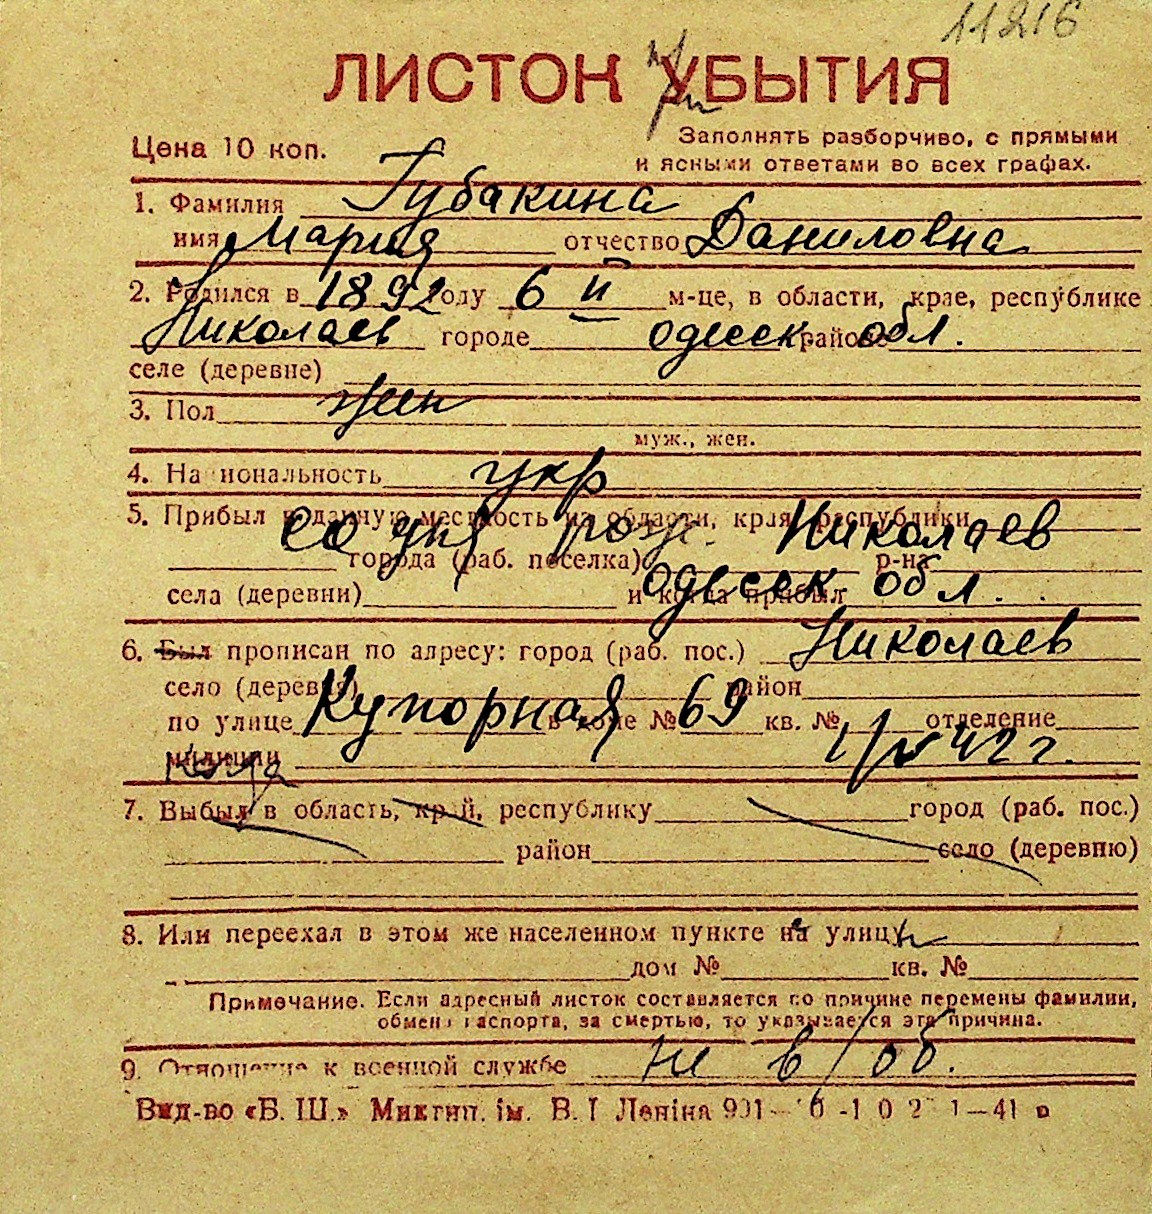 11216
ЛИСТОК УБЫТИЯ
Цена 10 коп.
Заполнять разборчиво, с прямыми
и ясными ответами во всех графах.
1. Фамилия Губакина
имя Мария отчество Даниловна
2. Родился в 1892 году 6 II м-це, в области, крае, республике
Николаев городе одесск. районе обл.
селе (деревне)
3. Пол жен
муж., жен.
4. Национальность укр
5. Прибыл в данную местность из области, края, республики
со дня рож. Николаев
города (раб. поселка) р-на
одесск обл.
села (деревни) и когда прибыл
6. Был прописан по адресу: город (раб. пос.) Николаев
село (деревня) район
по улице Купорная в доме № 69 кв. № отделение
милиции 42 г.
7. Выбыл в область, край, республику город (раб. пос.)
район село (деревню)
8. Или переехал в этом же населенном пункте на улицу
дом № кв. №
Примечание. Если адресный листок составляется по причине перемены фамилии,
обмена паспорта, за смертью, то указывается эта причина.
9. Отношение к военной службе не в/об.
Вид-во «Б. Ш.» Миктип. ім. В. І Леніна